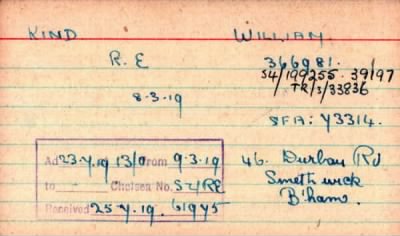 KIND WILLIAM.
R.E 366981.
S4/199255. 39197
TR/3/33836
8-3-19
SFA: Y3314.
Ad 23.4.19 13/0 From 9-3-19
to — Chelsea No. S4/RE
Received 25.4.19. 61945
46. Durban Rd
Smethwick
B'ham.